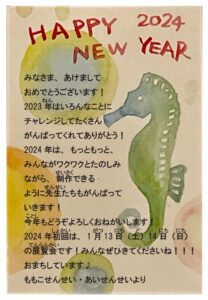 HAPPY 2024
NEW YEAR
みなさま、あけまして
おめでとうございます！
2023年はいろんなことに
チャレンジしてたくさん
がんばってくれてありがとう！
2024年は、もっともっと、
みんながワクワクとたのしみ
ながら、制作できる
ように先生たちもがんばって
いきます！
今年もどうぞよろしくおねがいします！
2024年初回は、1月13日（土）14日（日）
の展覧会です！みんなぜひきてくださいね！！！
おまちしています♪
ももこせんせい・あいこせんせいより